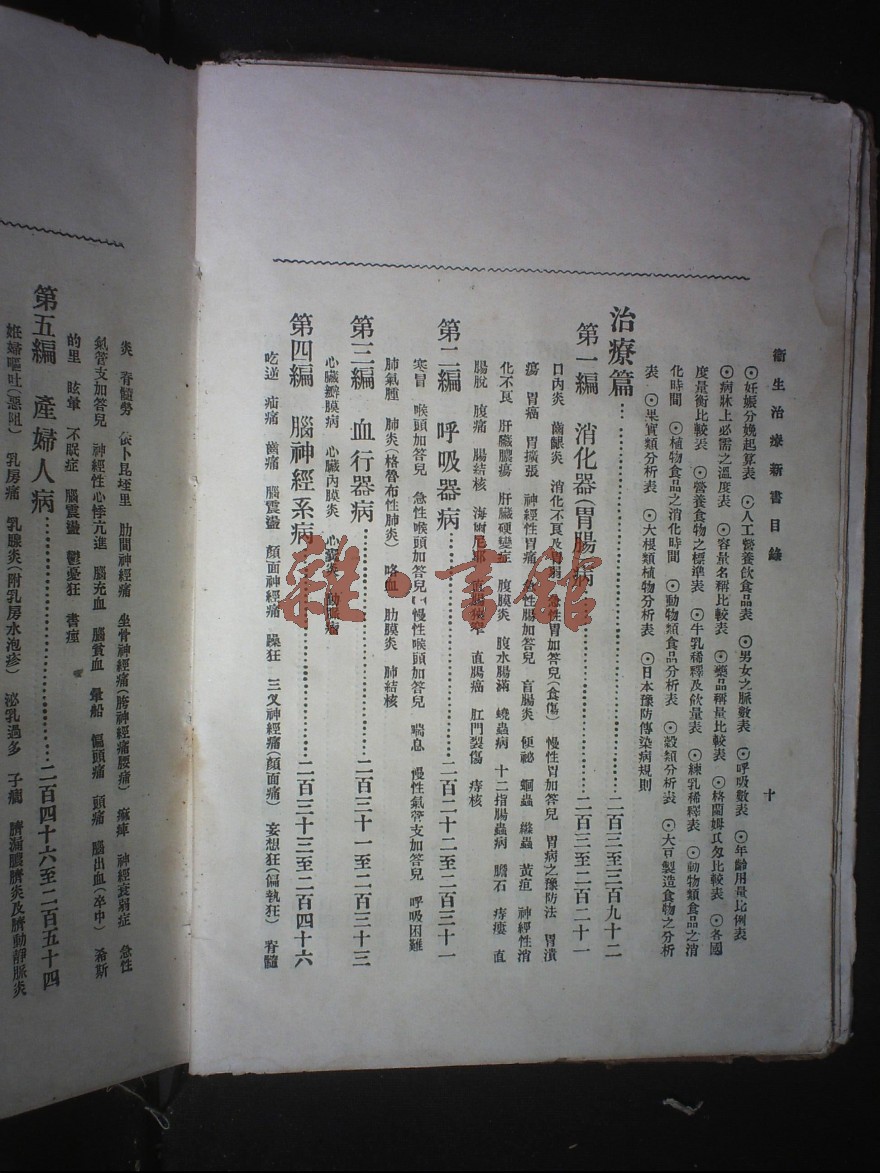 衛生治療新書目錄 十
⊙妊娠分娩起算表 ⊙人工營養飲食品表 ⊙男女之脈數表 ⊙呼吸數表 ⊙年齡用量比例表
⊙病牀上必需之溫度表 ⊙容量名稱比較表 ⊙藥品稱量比較表 ⊙格蘭姆瓦匁比較表 ⊙各國
度量衡比較表 ⊙營養食物之標準表 ⊙牛乳稀釋及飲量表 ⊙練乳稀釋表 ⊙動物類食品之消
化時間 ⊙植物食品之消化時間 ⊙動物類食品分析表 ⊙穀類分析表 ⊙大豆製造食物之分析
表 ⊙果實類分析表 ⊙大根類植物分析表 ⊙日本豫防傳染病規則
治療篇……二百三至三百九十二
第一編 消化器(胃腸)病……二百三至二百二十一
口內炎 齒齦炎 消化不良及胃弱 急性胃加答兒(食傷) 慢性胃加答兒 胃病之豫防法 胃潰
瘍 胃癌 胃擴張 神經性胃痛 急性腸加答兒 盲腸炎 便祕 蛔蟲 縧蟲 黃疸 神經性消
化不良 肝臟膿瘍 肝臟硬變症 腹膜炎 腹水腸滿 蟯蟲病 十二指腸蟲病 膽石 痔瘻 直
腸脫 腹痛 腸結核 海爾尼耶 直腸痙攣 直腸癌 肛門裂傷 痔核
第二編 呼吸器病……二百二十二至二百三十一
寒冒 喉頭加答兒 急性喉頭加答兒 慢性喉頭加答兒 喘息 慢性氣管支加答兒 呼吸困難
肺氣腫 肺炎(格魯布性肺炎) 咯血 肋膜炎 肺結核
第三編 血行器病……二百三十一至二百三十三
心臟瓣膜病 心臟內膜炎 心囊炎 動脈瘤
第四編 腦神經系病……二百三十三至二百四十六
吃逆 疝痛 齒痛 腦震盪 顏面神經痛 躁狂 三叉神經痛(顏面痛) 妄想狂(偏執狂) 脊髓
炎 脊髓勞 依卜昆垤里 肋間神經痛 坐骨神經痛(胯神經痛腰痛) 痲痺 神經衰弱症 急性
氣管支加答兒 神經性心悸亢進 腦充血 腦貧血 暈船 偏頭痛 頭痛 腦出血(卒中) 希斯
的里 眩暈 不眠症 腦震盪 鬱憂狂 書痙
第五編 產婦人病……二百四十六至二百五十四
妊婦嘔吐(惡阻) 乳房痛 乳腺炎(附乳房水泡疹) 泌乳過多 子癇 臍漏膿臍炎及臍動靜脈炎
雜·書館